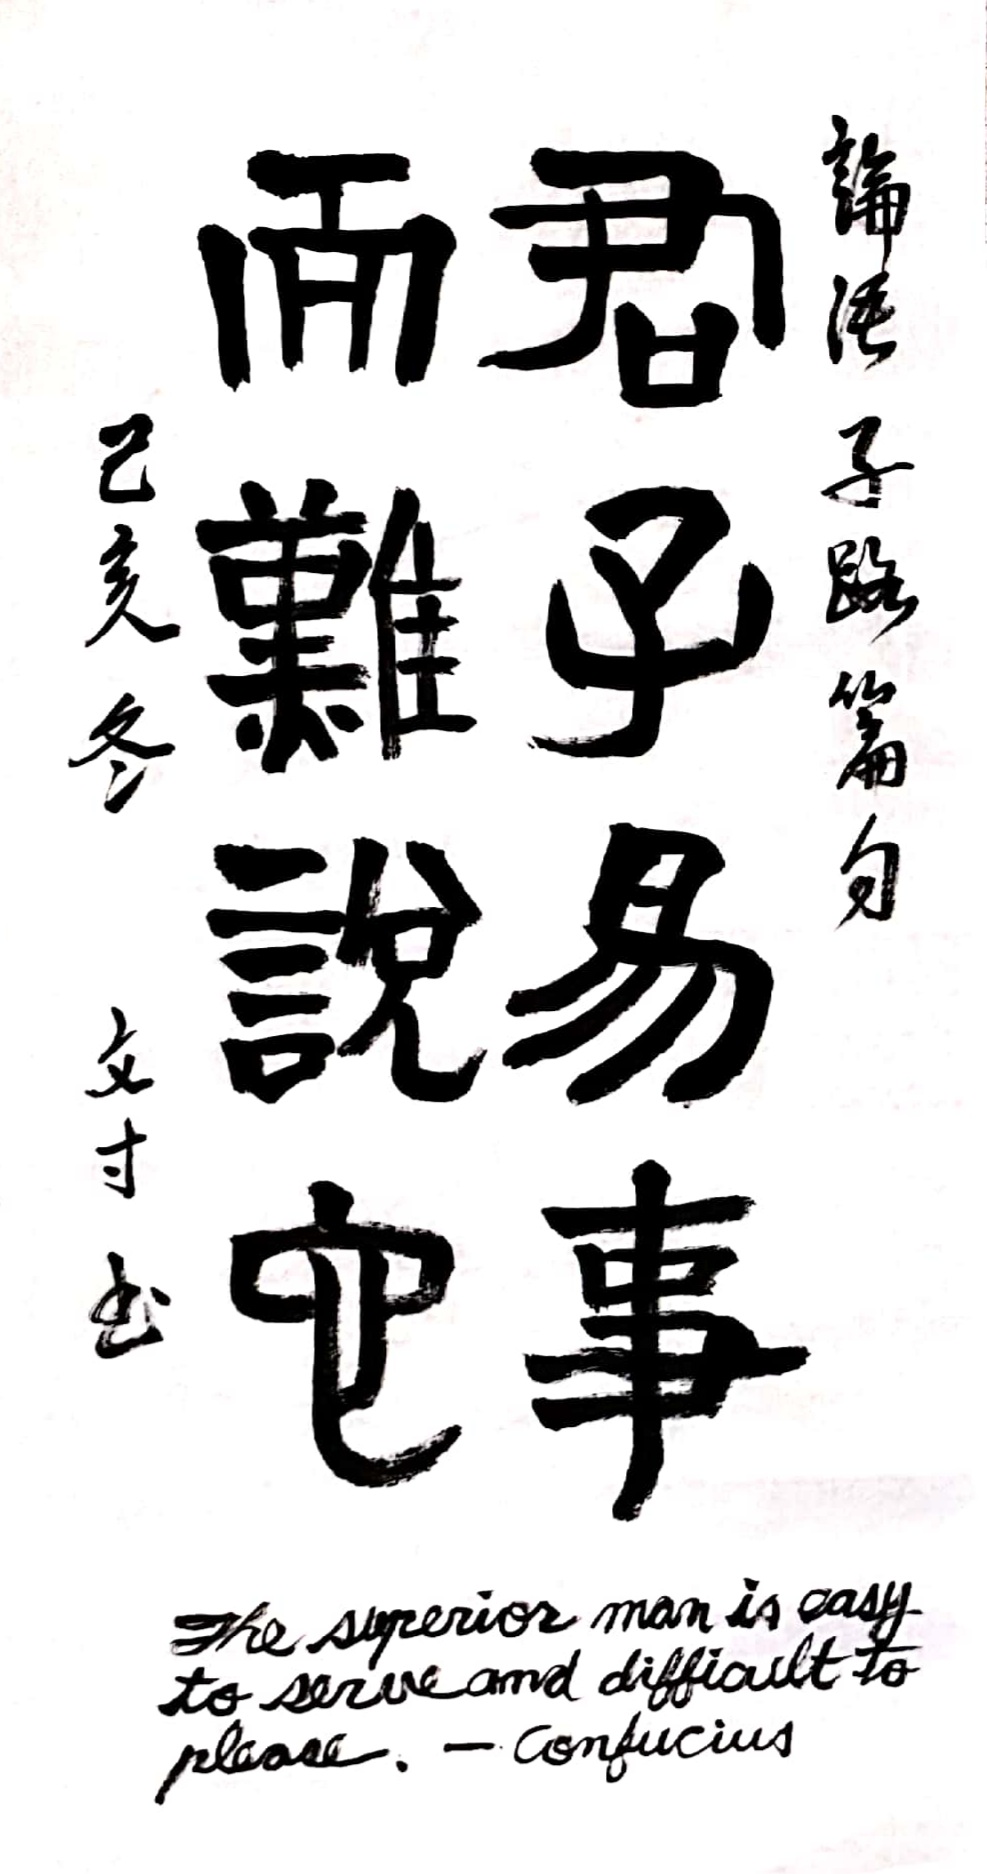 論語 子路篇句
君子易事
而難説也
己亥冬 文寸书
The superior man is easy
to serve and difficult to
please. — Confucius